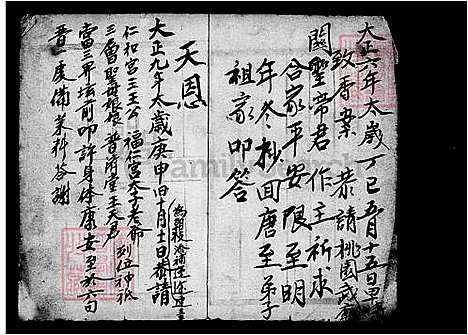 大正六年太歲丁巳五月十五日
致香案恭請桃園武廟
関聖帝君作主祈求
合家平安限至明
年冬抄回唐至弟子
祖家叩答
天恩
大正九年太歲庚申旧十月十一日恭請
仁和宮王主公福仁宮太子老爺
三層聖母娘娘普濟堂王天君
列位神祇
當三界坛前叩許身体康安至於六旬
晋一度備菜料答謝